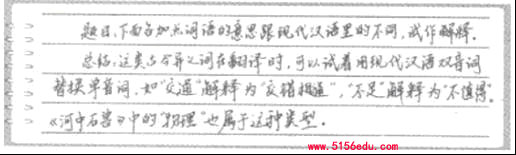 题目,下面各加点词语的意思跟现代汉语里的不同,试作解释。
总结,这类古今异义词在翻译时,可以试着用现代汉语双音词
替换单音词,如“交通”解释为“交错相通”,“不足”解释为“不值得”。
《河中石兽》中的“物理”也属于这种类型。
www.5156edu.com